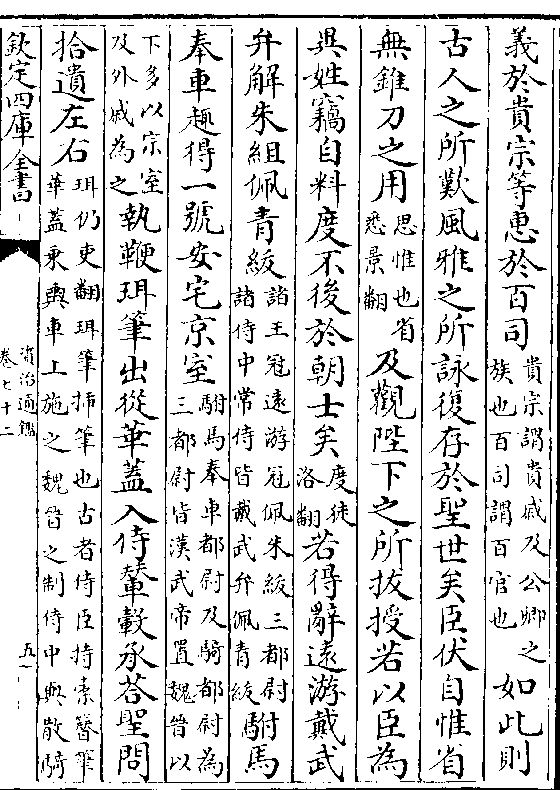 義於貴宗等惠於百司貴宗謂貴戚及公卿之族也百司謂百官也如此則
古人之所歎風雅之所詠復存於聖世矣臣伏自惟省
無錐刀之用思惟也省悉景翻及觀陛下之所拔授若以臣為
異姓竊自料度不後於朝士矣度徒洛翻若得辭遠游戴武
弁解朱組佩青紱諸王冠遠游冠佩朱紱三都尉諸侍中常侍皆戴武弁佩青紱駙馬
奉車趣得一號安宅京室駙馬奉車都尉及騎都尉為三都尉皆漢武帝置魏晉以
下多以宗室及外戚為之執鞭珥筆出從華蓋入侍輦轂承答聖問
拾遺左右珥仍吏翻珥筆揷筆也古者侍臣持橐簪筆華蓋乘輿車上施之魏晉之制侍中與散騎
欽定四庫全書
資治通鑑
卷七十二
五